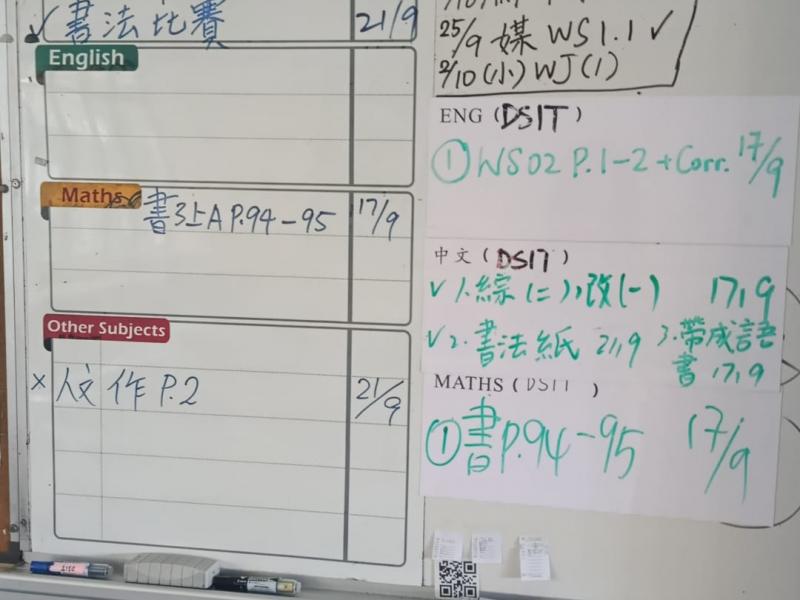 ✓ 書法比賽 21/9
English
Maths
書3上A P.94-95 17/9
Other Subjects
× 人文 作 P.2 21/9
25/9 媒 WS1.1 ✓
2/10 (小) WJ(1)
ENG (DSIT)
① WS02 P.1-2 + Corr. 17/9
中文 (DSIT)
✓ 1.綜(二),改(一) 17,9
✓ 2.書法紙 21,9 3.帶成語
書 17,9
MATHS (DSIT)
①書P.94-95 17/9